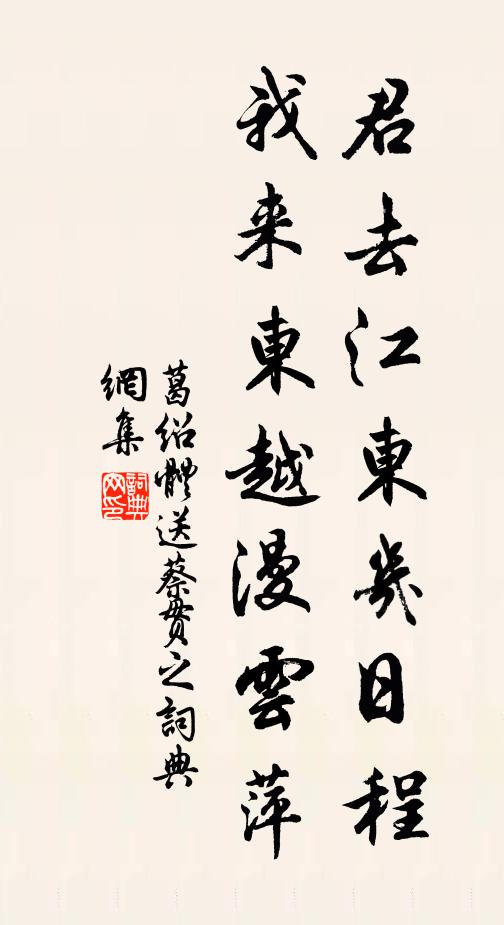 君去江東幾日程
我来東越漫雲萍
葛紹體送蔡貫之詞典
網集
詞典网印